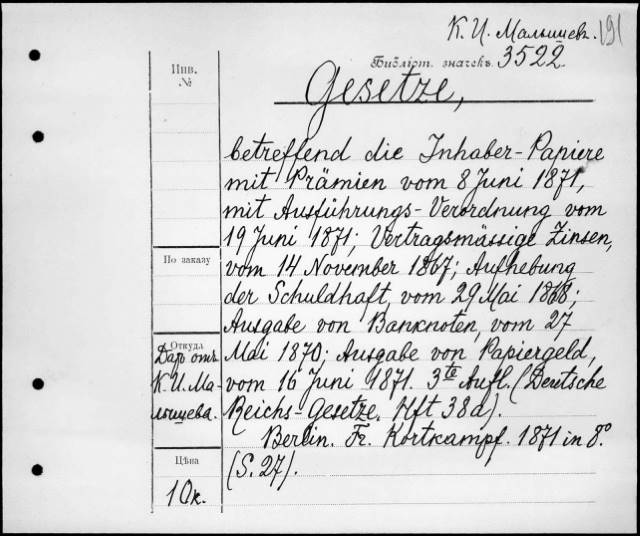 К. И. Малышев. 191
Библіот. значекъ 3522
Инв.
№
Gesetze,
betreffend die Inhaber-Papiere
mit Prämien vom 8 Juni 1871,
mit Ausführungs-Verordnung vom
19 Juni 1871; Vertragsmässige Zinsen,
vom 14 November 1867; Aufhebung
der Schuldhaft, vom 29 Mai 1868;
Ausgabe von Banknoten, vom 27
Mai 1870; Ausgabe von Papiergeld,
vom 16 Juni 1871. 3te Aufl. (Deutsche
Reichs-Gesetze. Hft 38a).
Berlin. Fr. Kortkampf. 1871 in 8°
(S. 27).
По заказу
Откуда
Даръ отъ
К. И. Ма-
лышева.
Цѣна
10к.